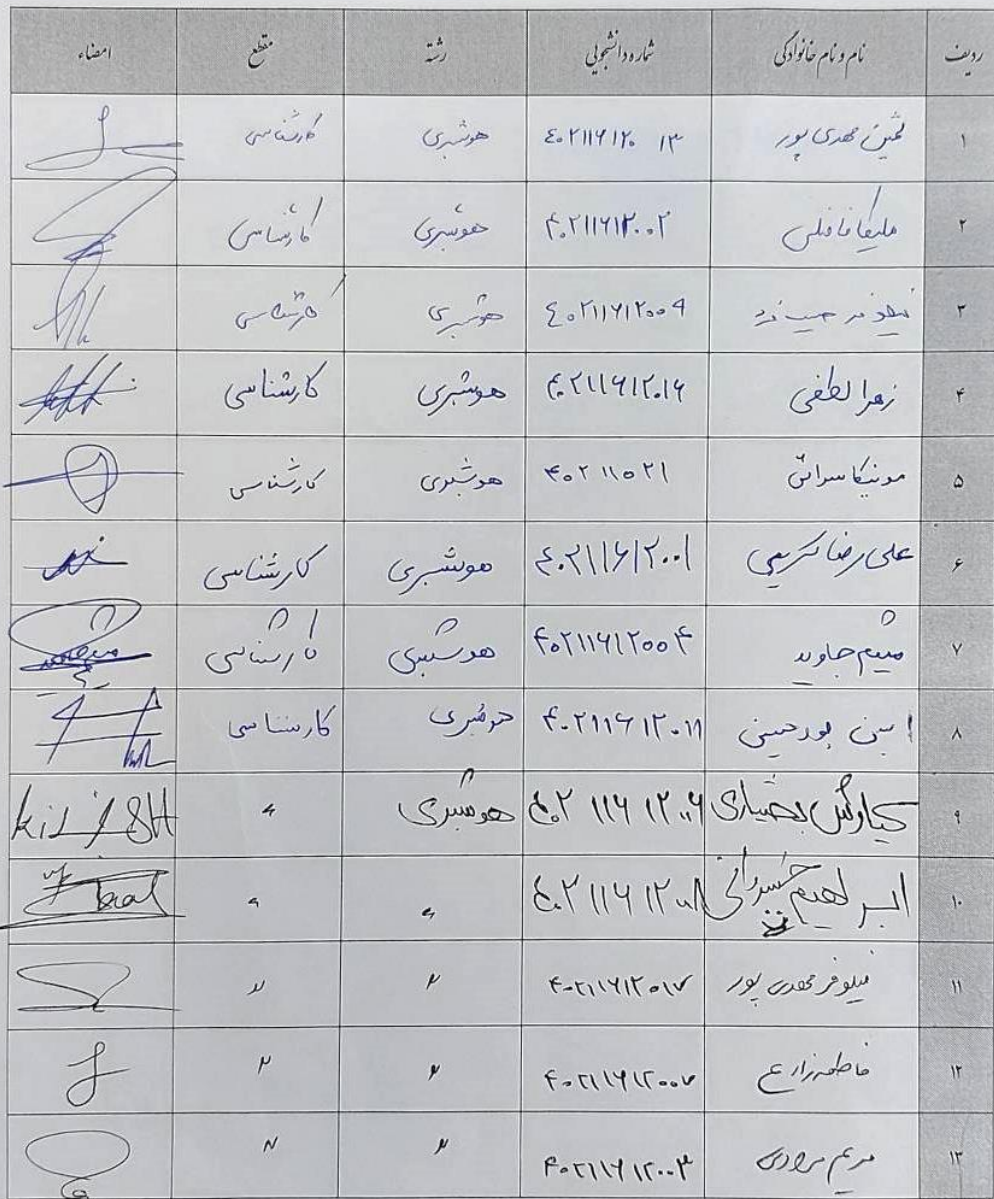 ردیف نام و نام خانوادگی شماره دانشجویی رشته مقطع امضاء
۱ ثمین مهدی پور ۴۰۲۱۱۶۱۲۰۱۳ هوشبری کارشناسی
۲ ملیکا قافلی ۴۰۲۱۱۶۱۲۰۰۲ هوشبری کارشناسی
۳ نیلوفر ۴۰۲۱۱۶۱۲۰۰۹ هوشبری کارشناسی
۴ زهرا لطفی ۴۰۲۱۱۶۱۲۰۱۶ هوشبری کارشناسی
۵ مونیکا ۴۰۲۱۱۰۲۱ هوشبری کارشناسی
۶ علی رضا کریمی ۴۰۲۱۱۶۱۲۰۰۱ هوشبری کارشناسی
۷ میثم جاوید ۴۰۲۱۱۶۱۲۰۰۴ هوشبری کارشناسی
۸ پورحسینی ۴۰۲۱۱۶۱۲۰۱۱ هوشبری کارشناسی
۹ کیارش بختیاری ۴۰۲۱۱۶۱۲۰۰۶ هوشبری 〃
۱۰ ابراهیم ۴۰۲۱۱۶۱۲۰۰۸ 〃 〃
۱۱ نیلوفر مهدی پور ۴۰۲۱۱۶۱۲۰۱۷ 〃 〃
۱۲ فاطمه زارع ۴۰۲۱۱۶۱۲۰۰۷ 〃 〃
۱۳ مریم مرادی ۴۰۲۱۱۶۱۲۰۰۳ 〃 〃